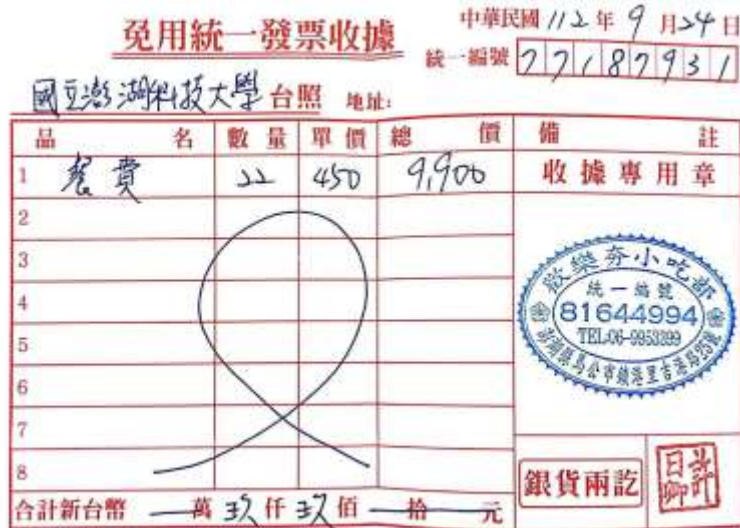 免用統一發票收據
中華民國 112 年 9 月 24 日
統一編號 77187931
國立澎湖科技大學 台照 地址:
品名 數量 單價 總價 備註
1 餐費 22 450 9,900 收據專用章
2
3
4
5
6
7
8
歡樂夯小吃部
統一編號
81644994
TEL:06-9953399
澎湖縣馬公市鎖港里吉港路25號
銀貨兩訖
合計新台幣 萬 玖 仟 玖 佰 拾 元